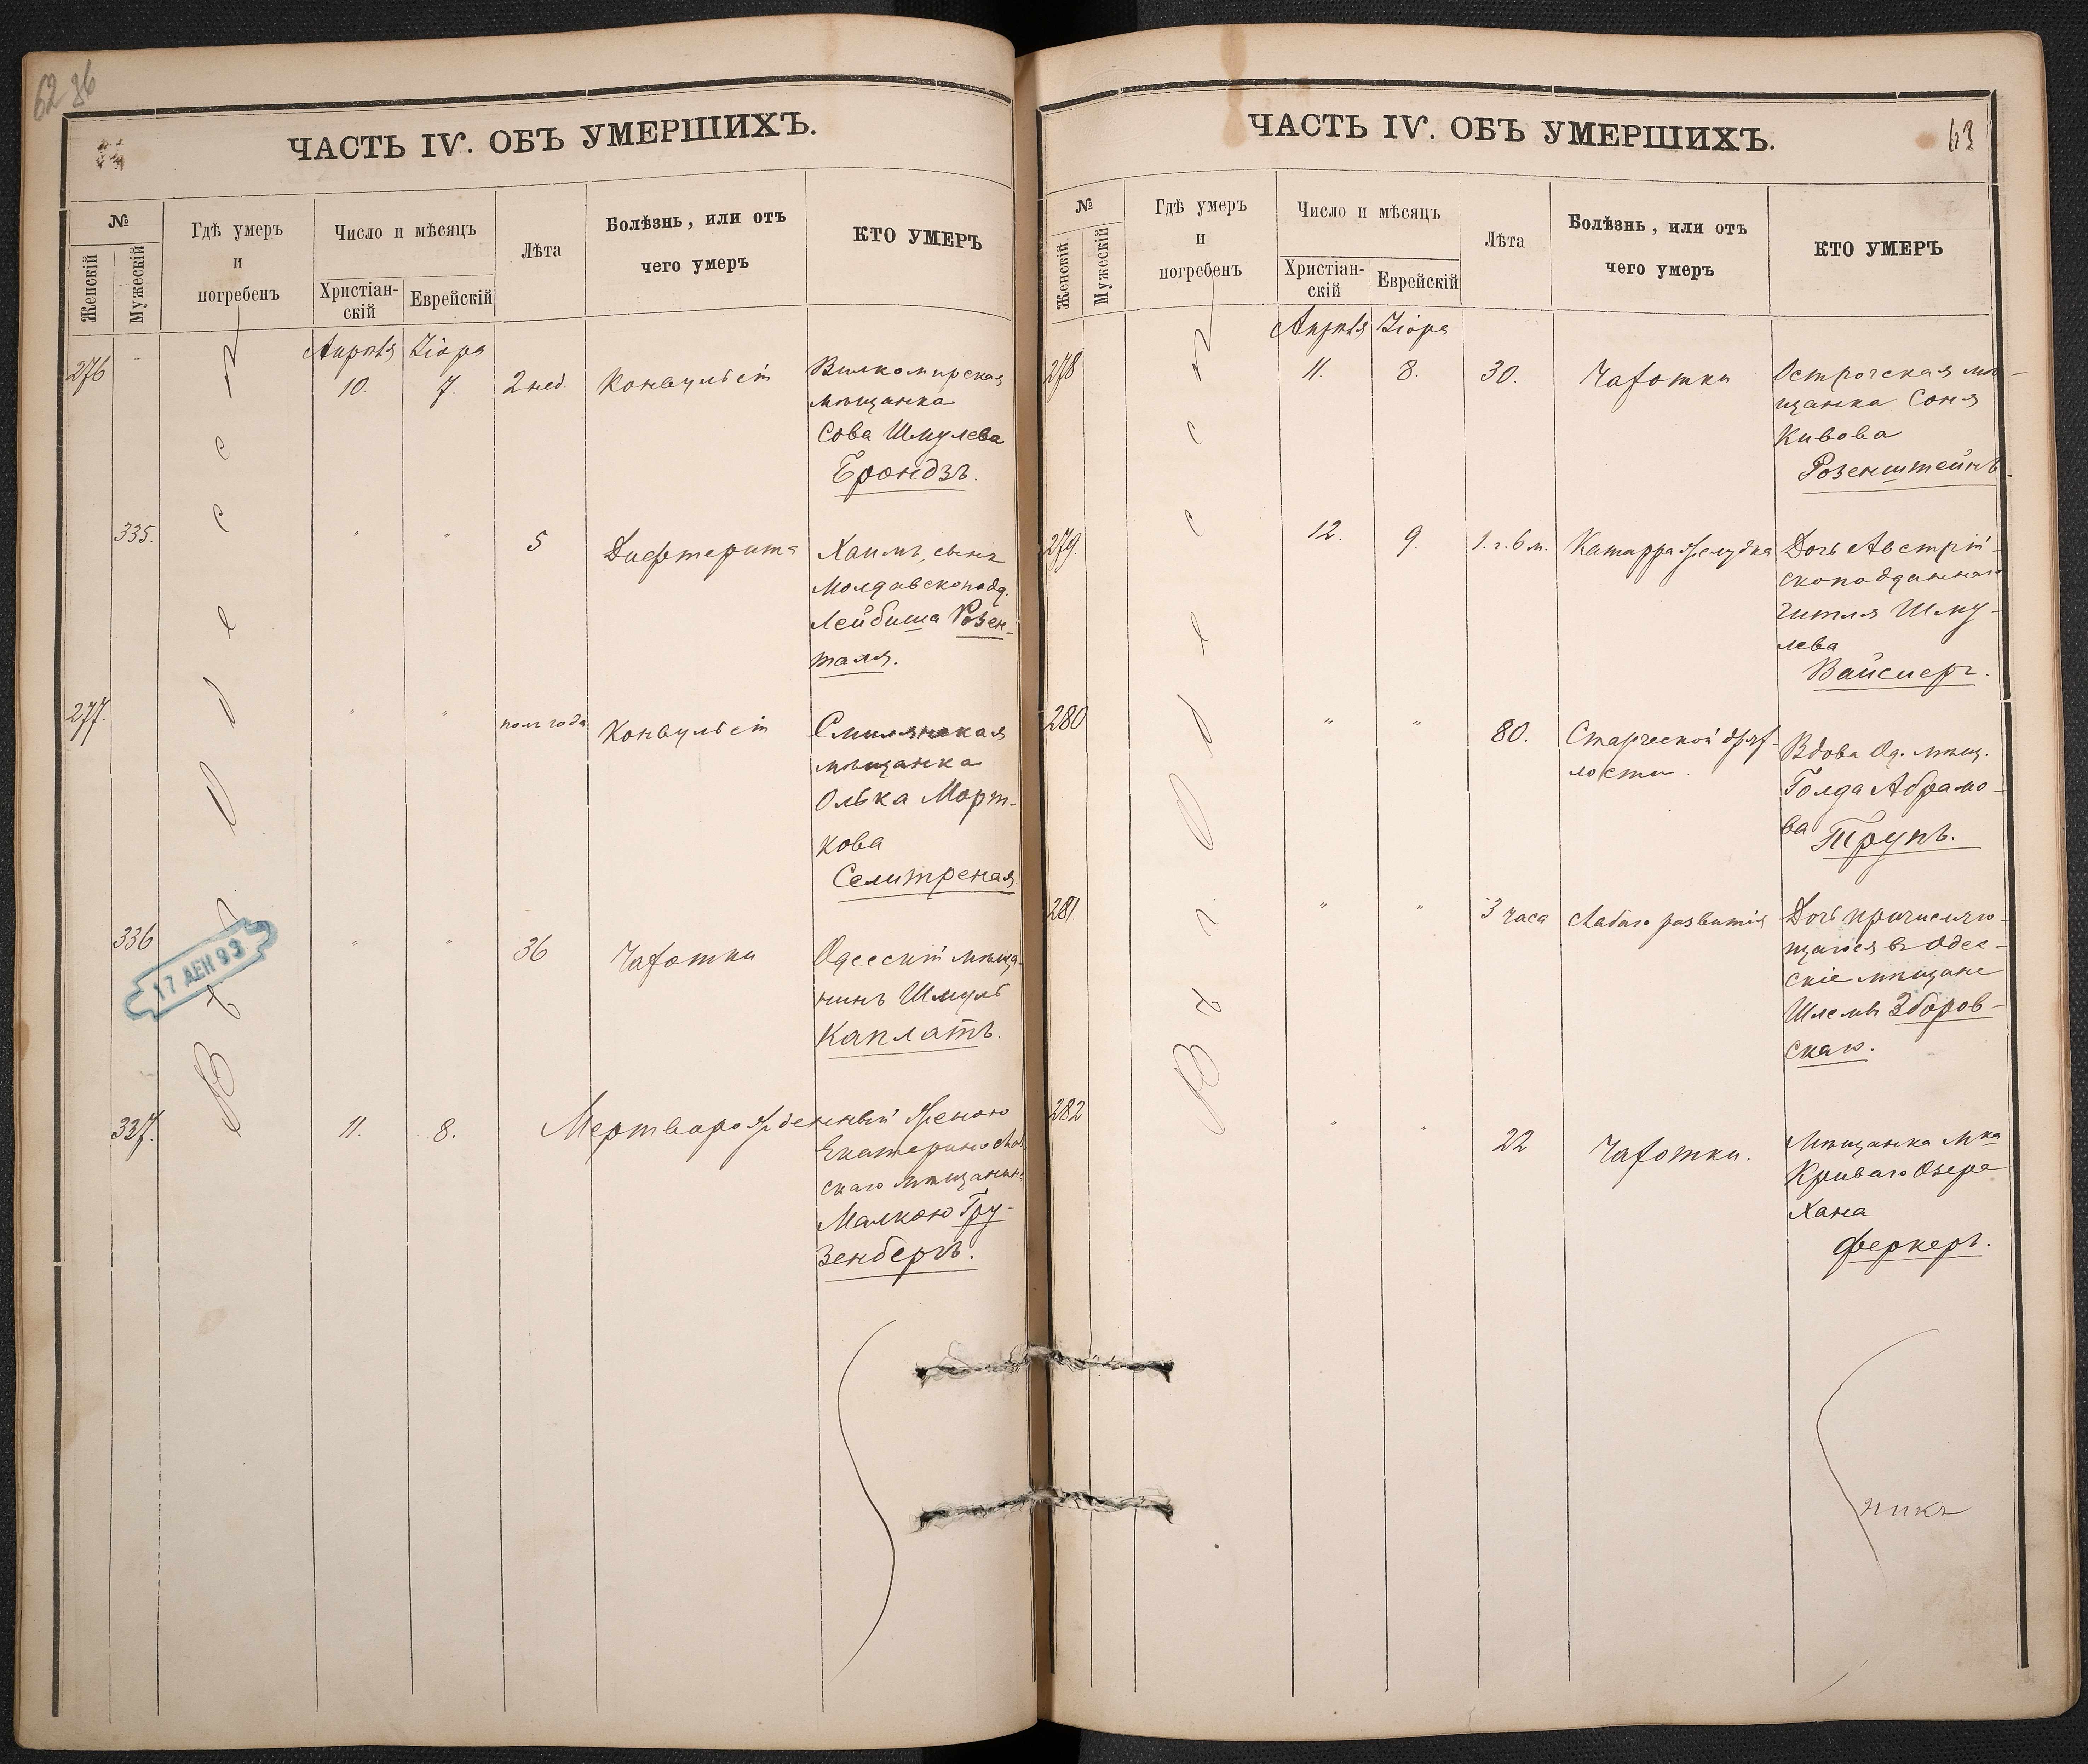 62 86
ЧАСТЬ IV. ОБЪ УМЕРШИХЪ.
№
Женскій
Мужескій
Гдѣ умеръ
и
погребенъ
Число и мѣсяцъ
Христіан-
скій
Еврейскій
Лѣта
Болѣзнь, или отъ
чего умеръ
КТО УМЕРЪ
Въ г. Одессѣ
Апрѣля Іiора
276 10. 7. 2 нед. Конвульсiй
Вилкомирская
мѣщанка
Сова Шмулева
Брондзъ.
335. " " 5 Дифтерита
Хаимъ, сынъ
Молдавскоподд.
Лейбиша Розен-
таля.
277. " " полгода Конвульсiй
Смилянская
мѣщанка
Олька Морт-
кова
Селитреная
336 " " 36 Чахотки
Одесскiй мѣща-
нинъ Шмуль
Каплатъ.
17 ДЕН 93
337. 11. 8. Мертворожденный женою
Екатеринослав
скаго мѣщанина
Малкою Гру-
зенбергъ.
ЧАСТЬ IV. ОБЪ УМЕРШИХЪ.
63
№
Женскій
Мужескій
Гдѣ умеръ
и
погребенъ
Число и мѣсяцъ
Христіан-
скій
Еврейскій
Лѣта
Болѣзнь, или отъ
чего умеръ
КТО УМЕРЪ
Въ г. Одессѣ
Апрѣля Іiора
278 11. 8. 30. Чахотки
Острогская мѣ-
щанка Соня
Кивова
Розенштейнъ.
279. 12. 9. 1. г. 6 м. Катарра желудка
Дочь Австрiй-
скоподданнаго
Гитля Шму-
лева
Вайснеръ.
280 " " 80. Старческой дрях-
лости.
Вдова Од. мѣщ.
Голда Абрамо-
ва Трупъ.
281. " " 3 часа Слабаго развитiя
Дочь причисляю-
щагося въ Одес-
скiе мѣщане
Шлемы Зборов-
скаго.
282 " " 22 Чахотки.
Мѣщанка м-ка
Криваго Озера
Хана
Феркеръ.
никъ